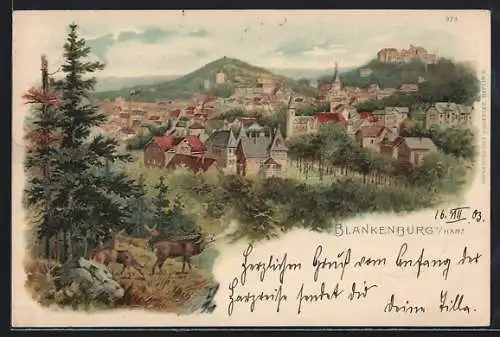 923
BLANKENBURG a/HARZ
16. VII 03.
Herzlichen Gruß vom Anfang der
Harzreise sendet dir
deine Tilla.